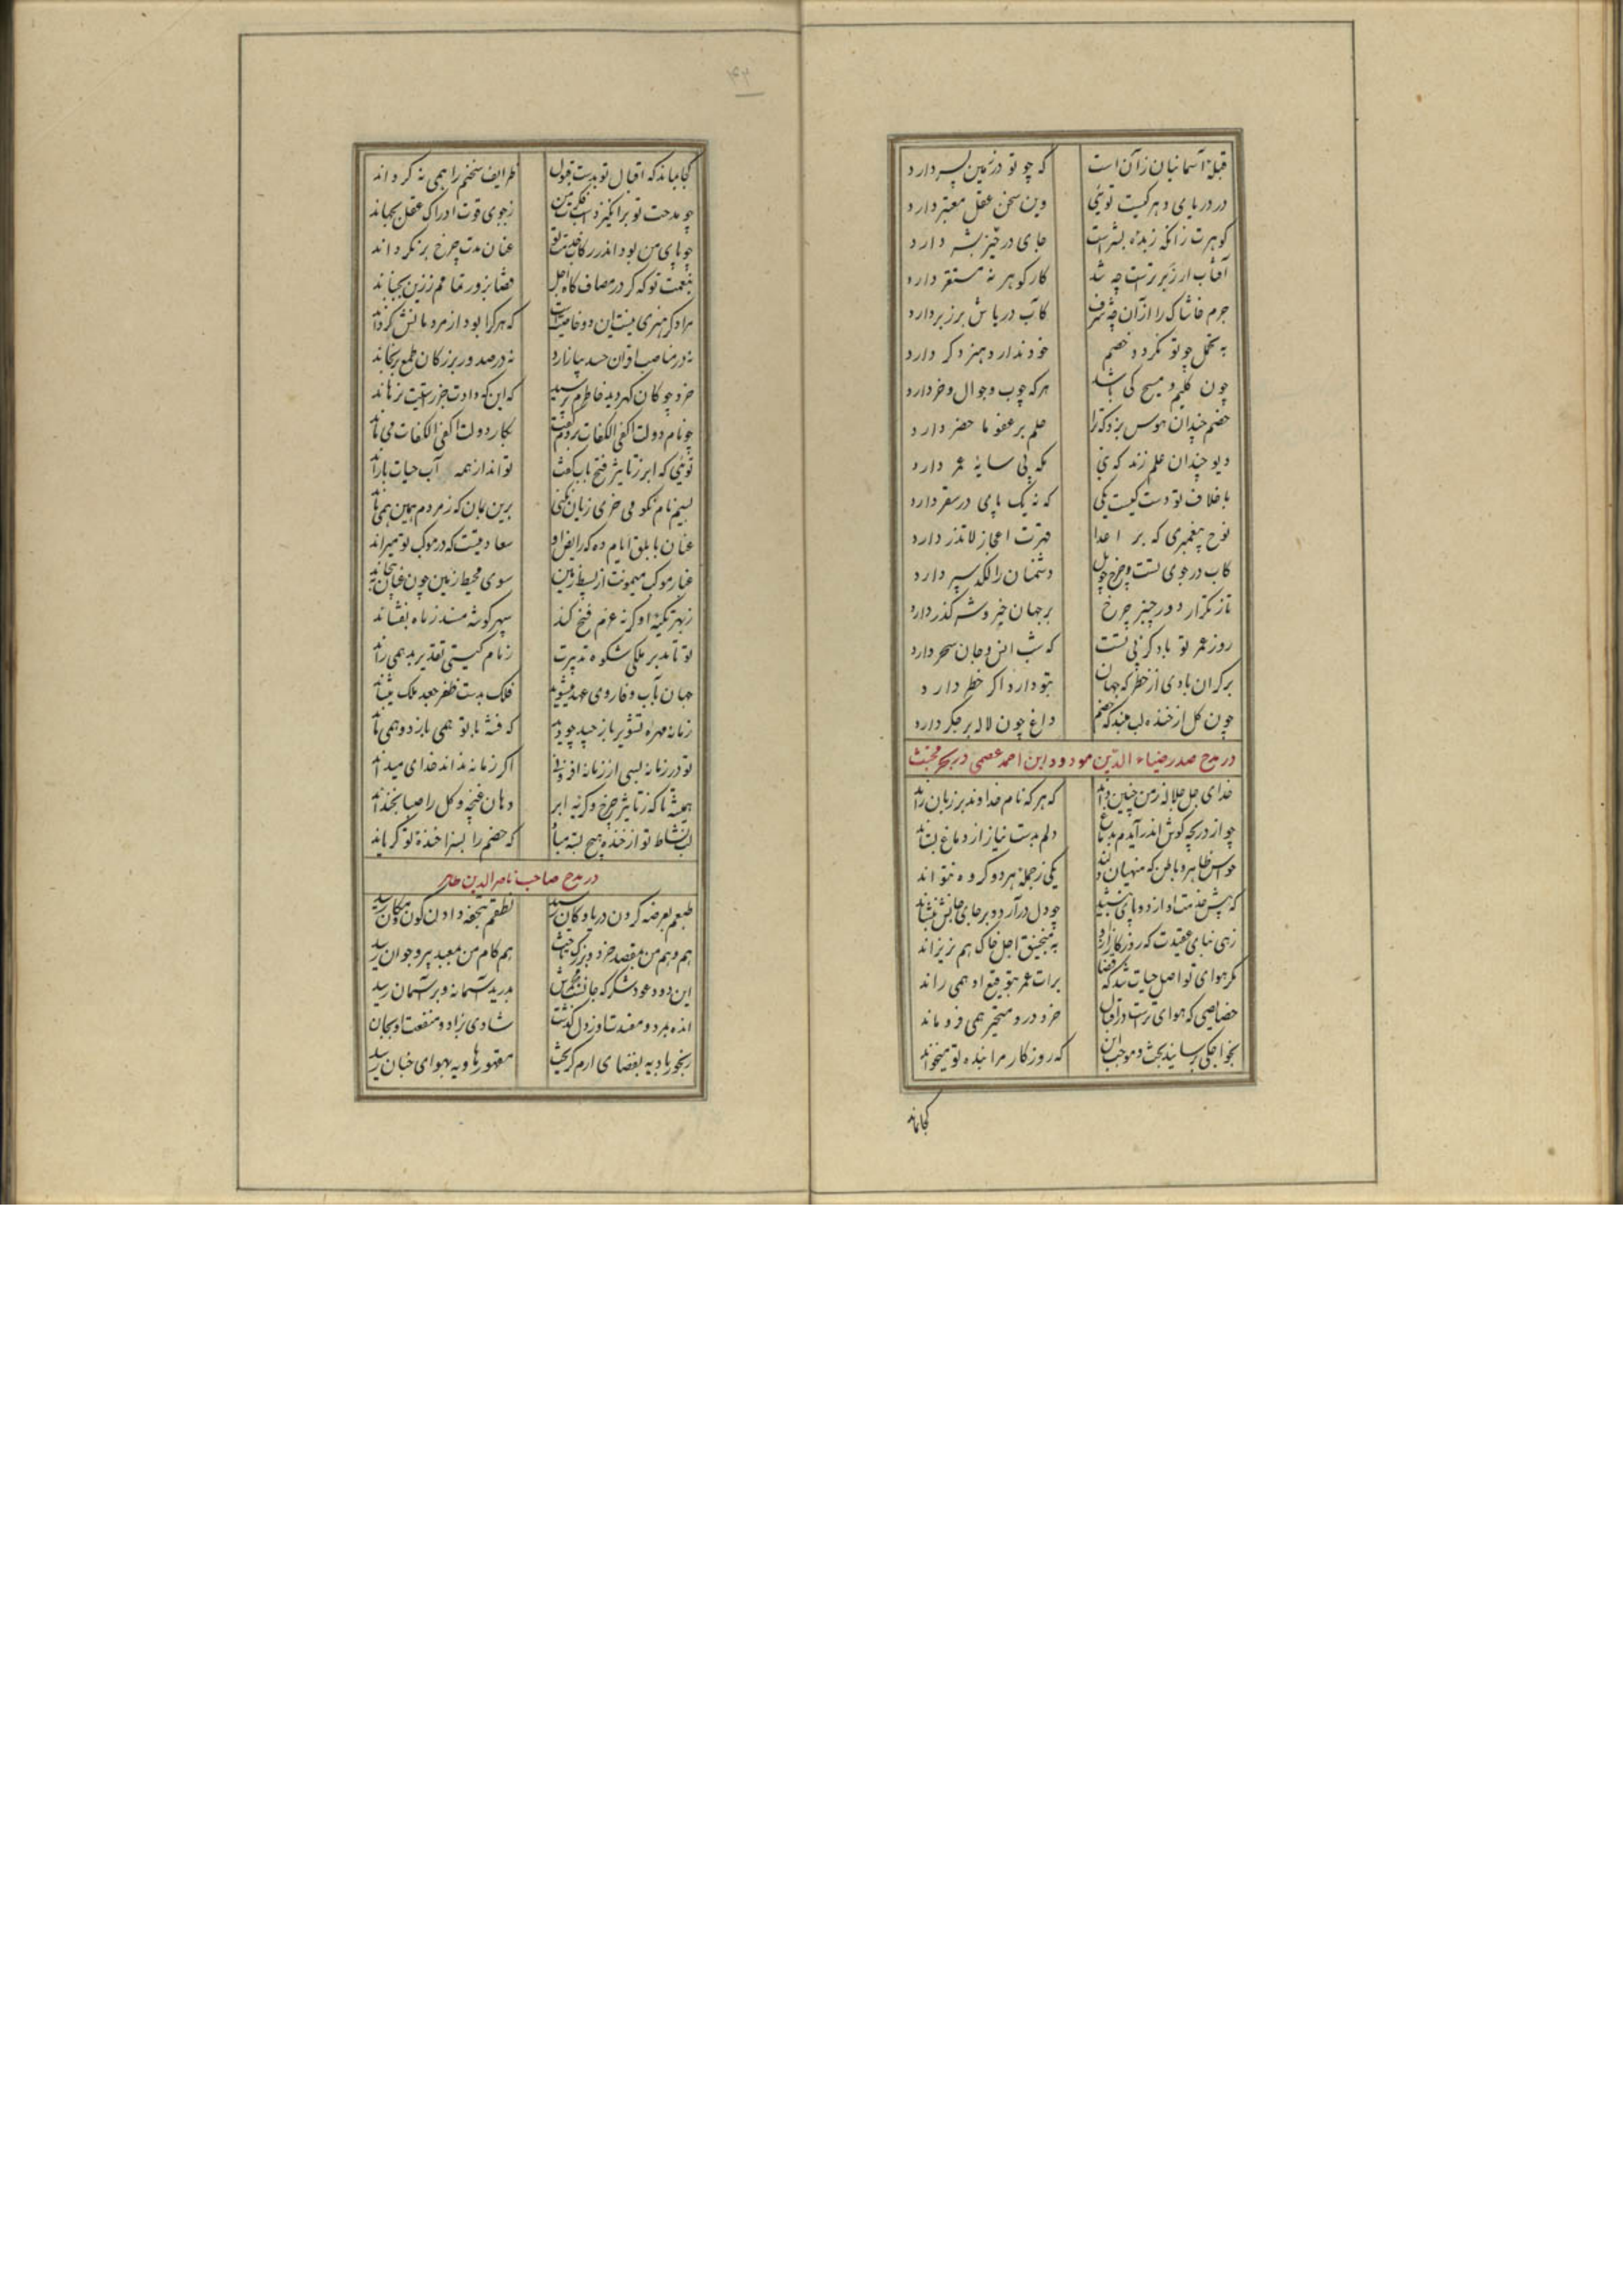 قبلهٔ آسمانیان زآن است که چو تو در زمین پسر دارد
در دریای دهر کیست توئی وین سخن عقل معتبر دارد
گوهرت زانکه زبدهٔ بشر است جای در حیز بشر دارد
آفتاب ار زبر ترست چه شد کار گوهر نه مستقر دارد
جرم خاشاک را از آن چه شرف کآب دریاش بر زبر دارد
به تحمل چو تو نگردد خصم خود ندارد هنر و گر دارد
چون کلیم و مسیح کی باشد هر که چوب و جوال و خر دارد
خصم چندان هوس بزد که ترا حلم بر عفو ما حضر دارد
دیو چندان علم زند که نبی مکه بی سایهٔ عمر دارد
با خلاف تو دست کیست یکی که نه یک پای در سقر دارد
نوح پیغمبری که بر اعدا قهرت اعجاز لاتذر دارد
کاب در جوی تست و چرخ چو پل دشمنان را لگد سپر دارد
تا ز تکرار دور چنبر چرخ بر جهان خیر و شر گذر دارد
روز عمر تو باد کز پی تست که شب انس و جان سحر دارد
بر کران بادی از خطر که جهان بتو دارد اگر خطر دارد
چون گل از خنده لب مبند که خصم داغ چون لاله بر جگر دارد
در مدح صدر ضیاء الدین مودود ابن احمد عصمی در بحر مجتث
خدای جل جلاله ز من چنین داند که هر که نام خداوند بر زبان راند
چو از دریچه گوش اندر آیدم بدماغ دلم بدست نیاز از دماغ بستاند
حواس ظاهر و باطن که منهیان دلند یکی ز جمله هر دو گروه نتواند
که پیش خدمت او از دو پای بنشیند چو دل درآرد و بر جای جانش بنشاند
زهی بنای عقیدت که روزگار او را به منجنیق اجل خاک هم نریزاند
مگر هوای تو اصل حیات شد که قضا برات عمر بتوقیع او همی راند
خصایصی که هوای تراست در اقبال خرد در و متحیر همی فرو ماند
بخواجگی برسانید بحث و موجب این که روزگار مرا بنده تو میخواند
کجا ماند
۴۳
کجا بماند که اقبال تو بدست قبول طرایف سخنم را همی نگرداند
چو مدحت تو برانگیزد اسب فکرت من ز جوی قوت ادراک عقل بجهاند
چو پای من بود اندر رکاب خدمت تو عنان مدت چرخ برنگرداند
بنعمت تو که گر در مصاف گاه اجل قضا بزور تمامم ز زین بجنباند
مرا دگر هنری نیست این دو خاصیت است که هر کرا بود از مردمانش گرداند
نه در مناصب اقران حسد بیازارد نه در صدور بزرگان طمع برنجاند
خرد چو کان گهر دید خاطرم پرسید که این که دادت جز راستیت نرهاند
چو نام دولت اکفی الکفات بردم گفت بکار دولت اکفی الکفات می ماند
توئی که ابر ز تاثیر فتح باب کفت تواند از همه آب حیات باراند
بسیم نام نکو می خری زیان نکنی برین بمان که ز مردم همین همی ماند
عنان بابلق ایام ده که رایض او سعادتیست که در موکب تو میراند
غبار موکب میمونت از بسیط زمین سوی محیط زمین چون عنان بپیچاند
ز بهر تکیهٔ او گر نه عزم فسخ کند سپهر گوشه مسند ز ماه بفشاند
تو تا مدبر ملکی شکوه تدبیرت زمام گیتی تقدیر بد همی راند
جهان بآب وفا روی عهد میشوید فلک بدست ظفر جعد ملک میشاند
زمانه مهرهٔ تشویر باز چید چو دید که فتنه با تو همی بازد و همی ماند
تو در زمانه بسی از زمانه افزونی اگر زمانه نداند خدای میداند
همیشه تا که ز تاثیر چرخ و گریه ابر دهان غنچه و گل را صبا بخنداند
لب نشاط تو از خنده هیچ بسته مباد که خصم را بسزا خنده تو گریاند
در مدح صاحب ناصرالدین طاهر
طبعم بعرضه کردن دریا و کان رسید نطقم بتحفه دادن کون و مکان رسید
هم وهم من بمقصد خرد و بزرگ جست هم کام من بمعبد پیر و جوان رسید
این دود عود شکر که جانست مجمرش بدرید آسمانه و بر آسمان رسید
انده بمرد و مفسدت او ز دل گذشت شادی بزاد و منفعت او بجان
رنجور بادیه بفضای ارم گریخت مقهور هاویه بهوای جنان رسید